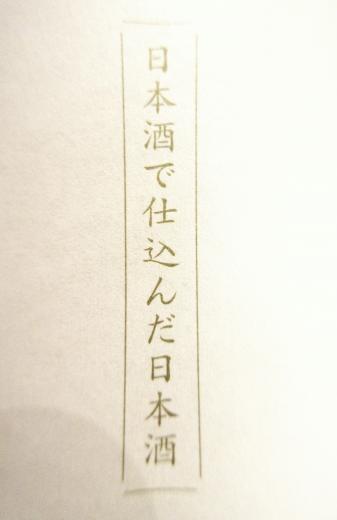 日本酒で仕込んだ日本酒